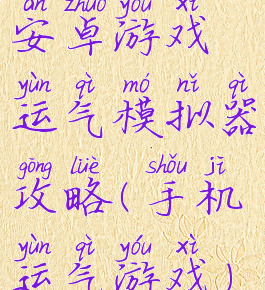 ān zhuó yóu xì
安卓游戏
yùn qì mó nǐ qì
运气模拟器
gōng lüè shǒu jī
攻略(手机
yùn qì yóu xì
运气游戏)